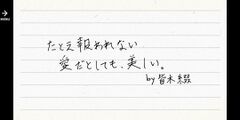 たとえ報われない
愛だとしても、美しい。
by 皆木綴
MENU